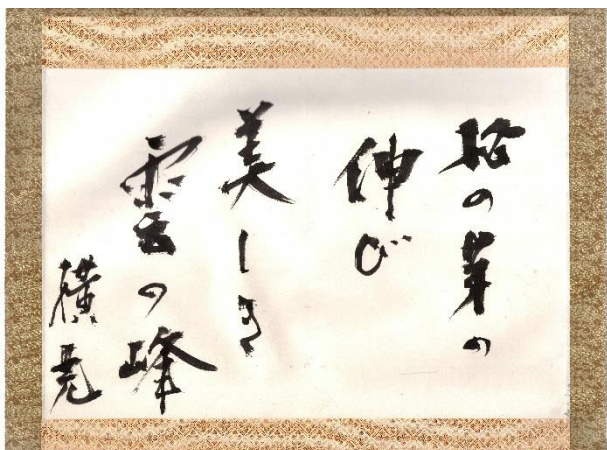 松の芽の
伸び
美しき
雲の峰
横亮